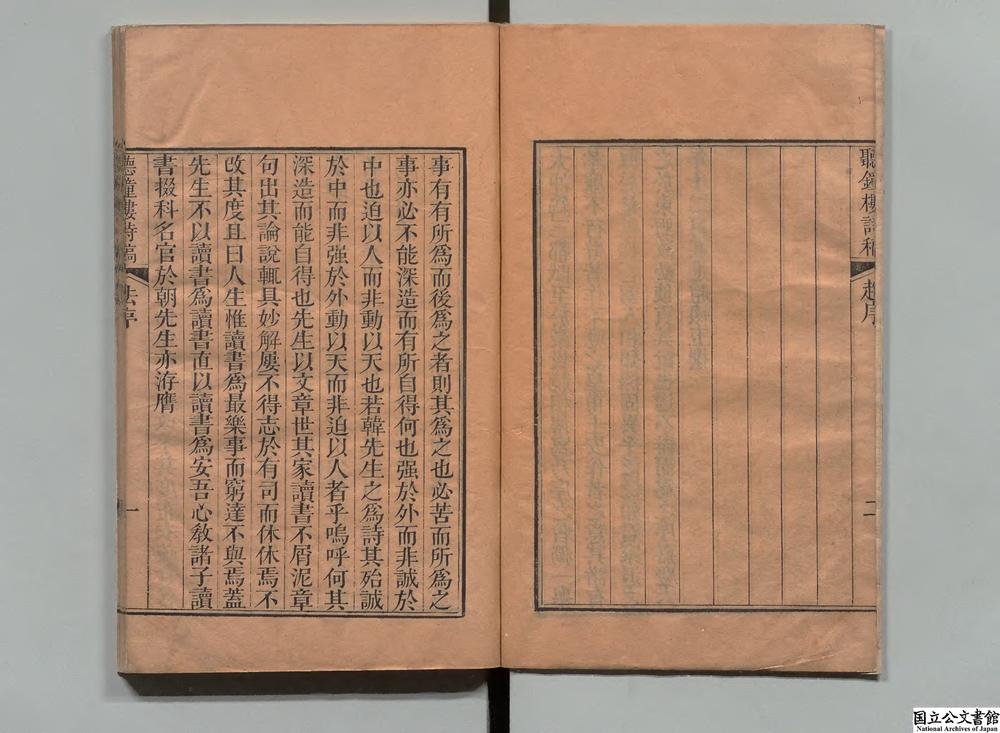 聽鐘樓詩稿
趙序
二
事有有所爲而後爲之者則其爲之也必苦而所爲之
事亦必不能深造而有所自得何也强於外而非誠於
中也迫以人而非動以天也若韓先生之爲詩其殆誠
於中而非强於外動以天而非迫以人者乎嗚呼何其
深造而能自得也先生以文章世其家讀書不屑泥章
句出其論說輒具妙解屢不得志於有司而休休焉不
改其度且曰人生惟讀書爲最樂事而窮達不與焉蓋
先生不以讀書爲讀書直以讀書爲安吾心敎諸子讀
書掇科名官於朝先生亦洊膺
聽鐘樓詩稿
序
一
国立公文書館
National Archives of Japan